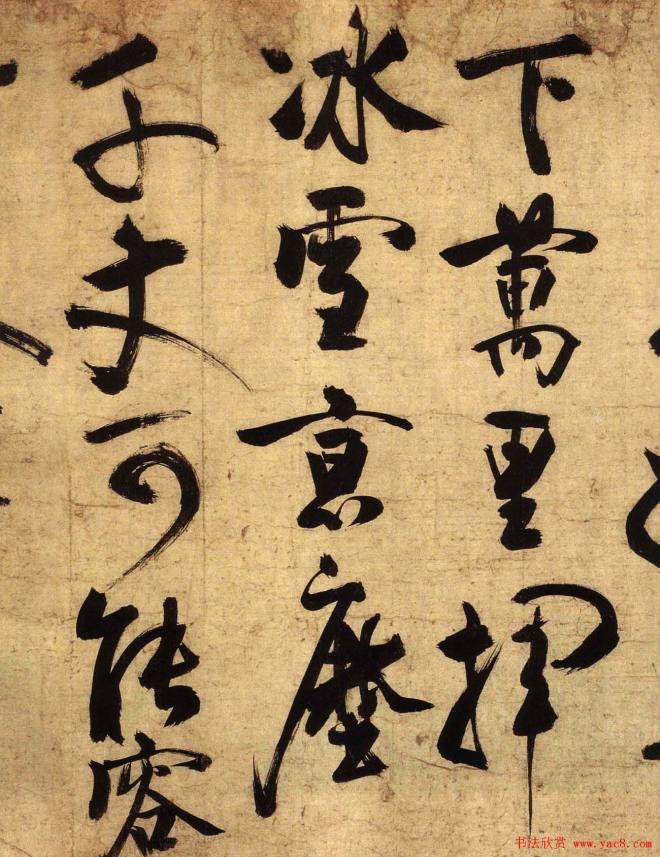 下萬里揮
冰雪意塵
千丈可能容
书法欣赏 www.yac8.com